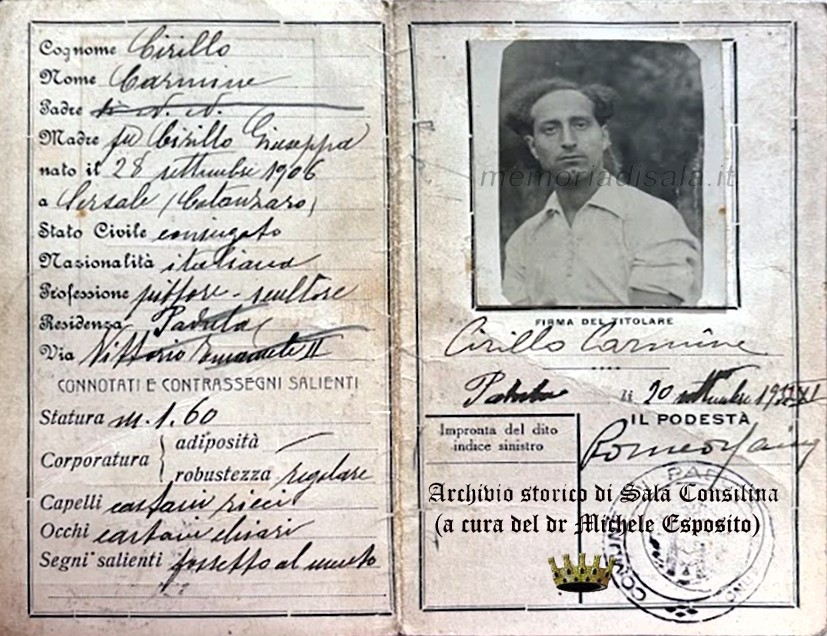 Cognome Cirillo
Nome Carmine
Padre di N. N.
Madre fu Cirillo Giuseppa
nato il 28 settembre 1906
a Sersale (Catanzaro)
Stato Civile coniugato
Nazionalità italiana
Professione pittore - scultore
Residenza Padula
Via Vittorio Emanuele II
CONNOTATI E CONTRASSEGNI SALIENTI
Statura m. 1.60
Corporatura
adiposità
robustezza regolare
Capelli castani ricci
Occhi castani chiari
Segni salienti fossetto al mento
memoriadisala.it
FIRMA DEL TITOLARE
Cirillo Carmine
Padula li 20 settembre
IL PODESTÀ
Impronta del dito
indice sinistro
Archivio storico di Sala Consilina
(a cura del dr Michele Esposito)
COMUNE